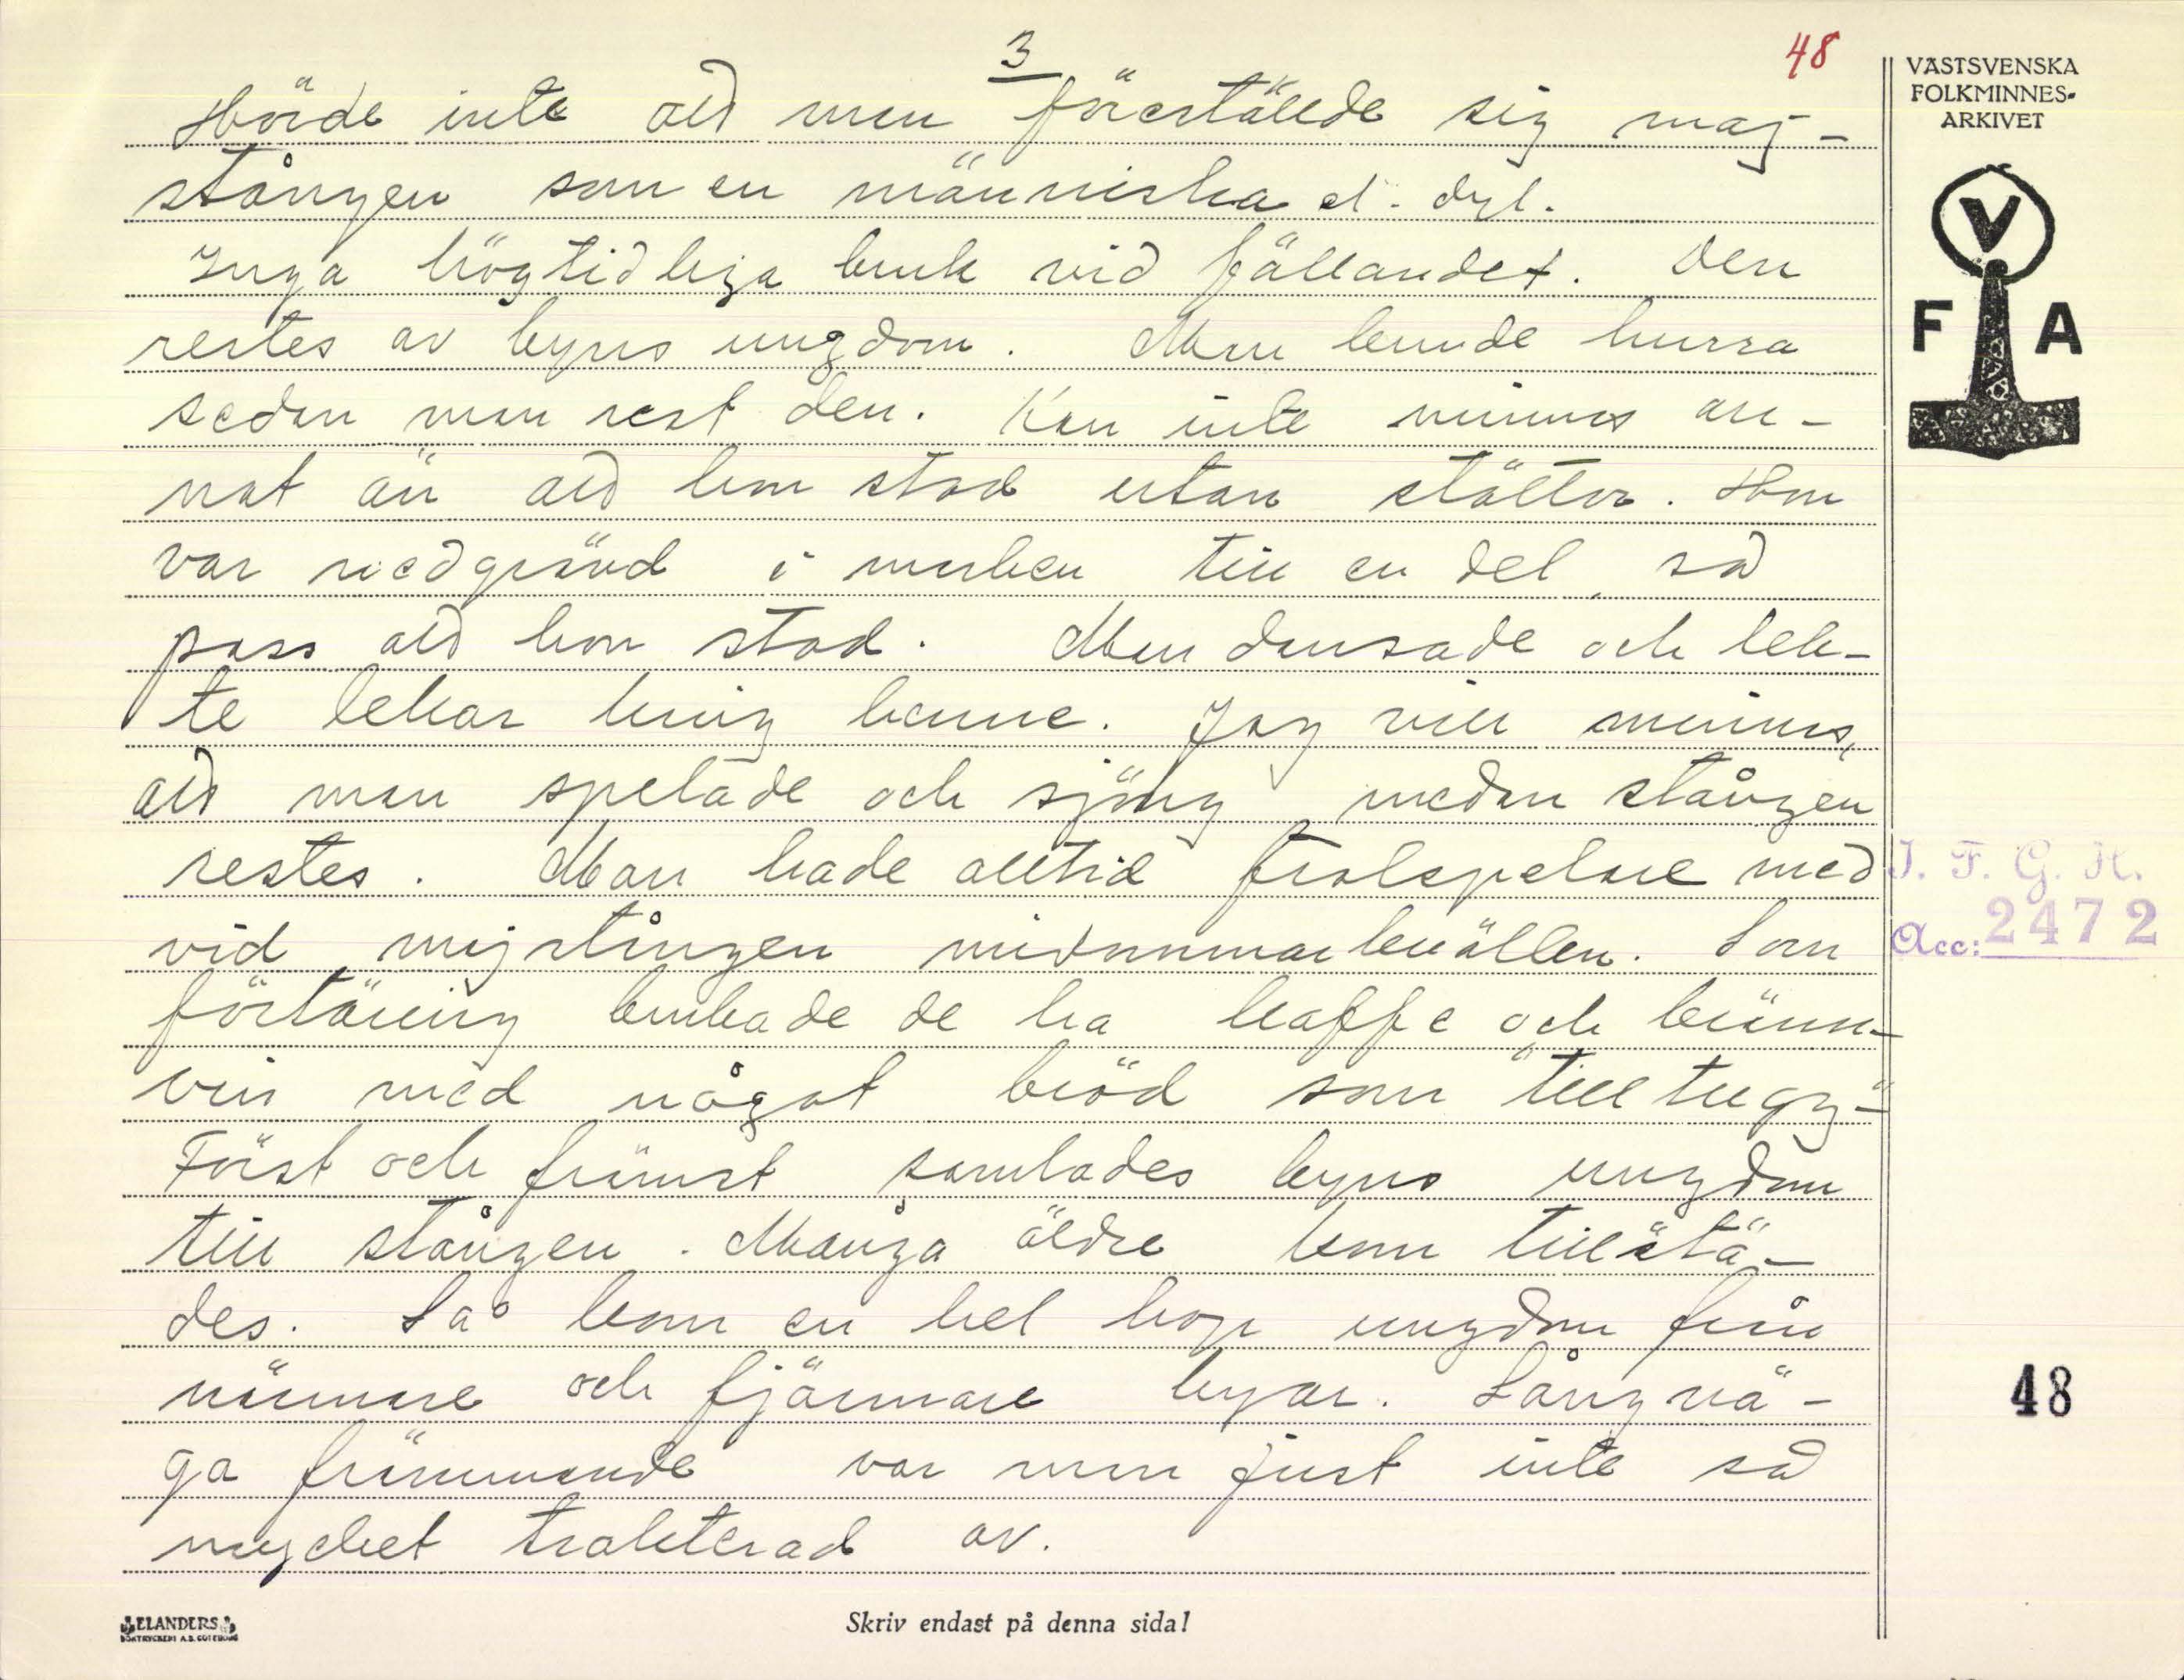 3
48
Hörde inte att man föreställde sig maj-
stången som en människa el. dyl.
Inga högtidliga bruk vid fällandet. Den
restes av byns ungdom. Man kunde hurra
sedan man rest den. Kan inte minnas an-
nat än att hon stod utan stöttor. Hon
var nedgrävd i marken till en del så
pass att hon stod. Man dansade och lek-
te lekar kring henne. Jag vill minnas,
att man spelade och sjöng medan stången
restes. Man hade alltid fiolspelare med
vid majstången midsommarkvällen. Som
förtäring brukade de ha kaffe och bränn-
vin med något bröd som "tilltugg".
Först och främst samlades byns ungdom
till stången. Många äldre kom tillstä-
des. Så kom en hel hop ungdom från
närmare och fjärmare byar. Långvä-
ga främmande var man just inte så
mycket trakterad av.
VÄSTSVENSKA
FOLKMINNES-
ARKIVET
V
F A
I. F. G. H.
Acc: 2472
48
ELANDERS
BOKTRYCKERI A.B. GÖTEBORG
Skriv endast på denna sida!